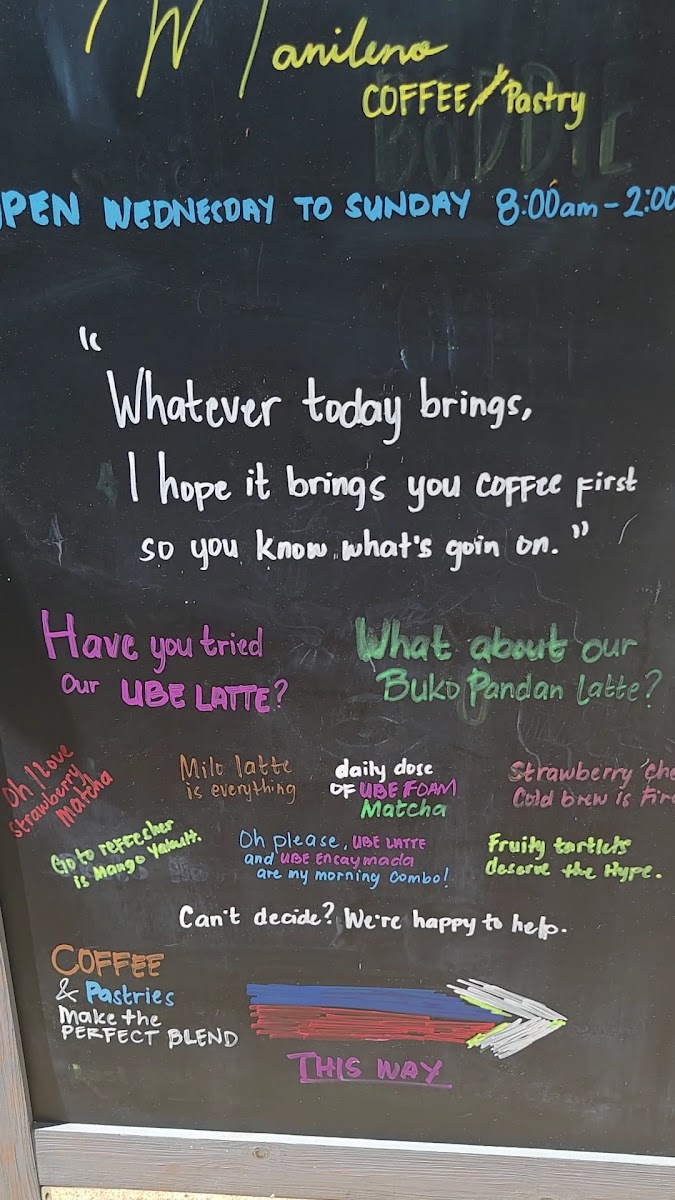 Manileno
COFFEE/Pastry
OPEN WEDNESDAY TO SUNDAY 8:00am-2:00
"Whatever today brings,
I hope it brings you coffee first
so you know what's goin on."
Have you tried
our UBE LATTE?
What about our
Buko Pandan Latte?
Oh I love
strawberry
Matcha
Milo latte
is everything
daily dose
OF UBE FOAM
Matcha
Strawberry 'che
Cold brew is Fire
Go to refresher
is Mango Yakult.
Oh please, UBE LATTE
and UBE Ensaymada
are my morning combo!
Fruity tartlets
deserve the Hype.
Can't decide? We're happy to help.
COFFEE
& Pastries
Make the
PERFECT BLEND
THIS WAY